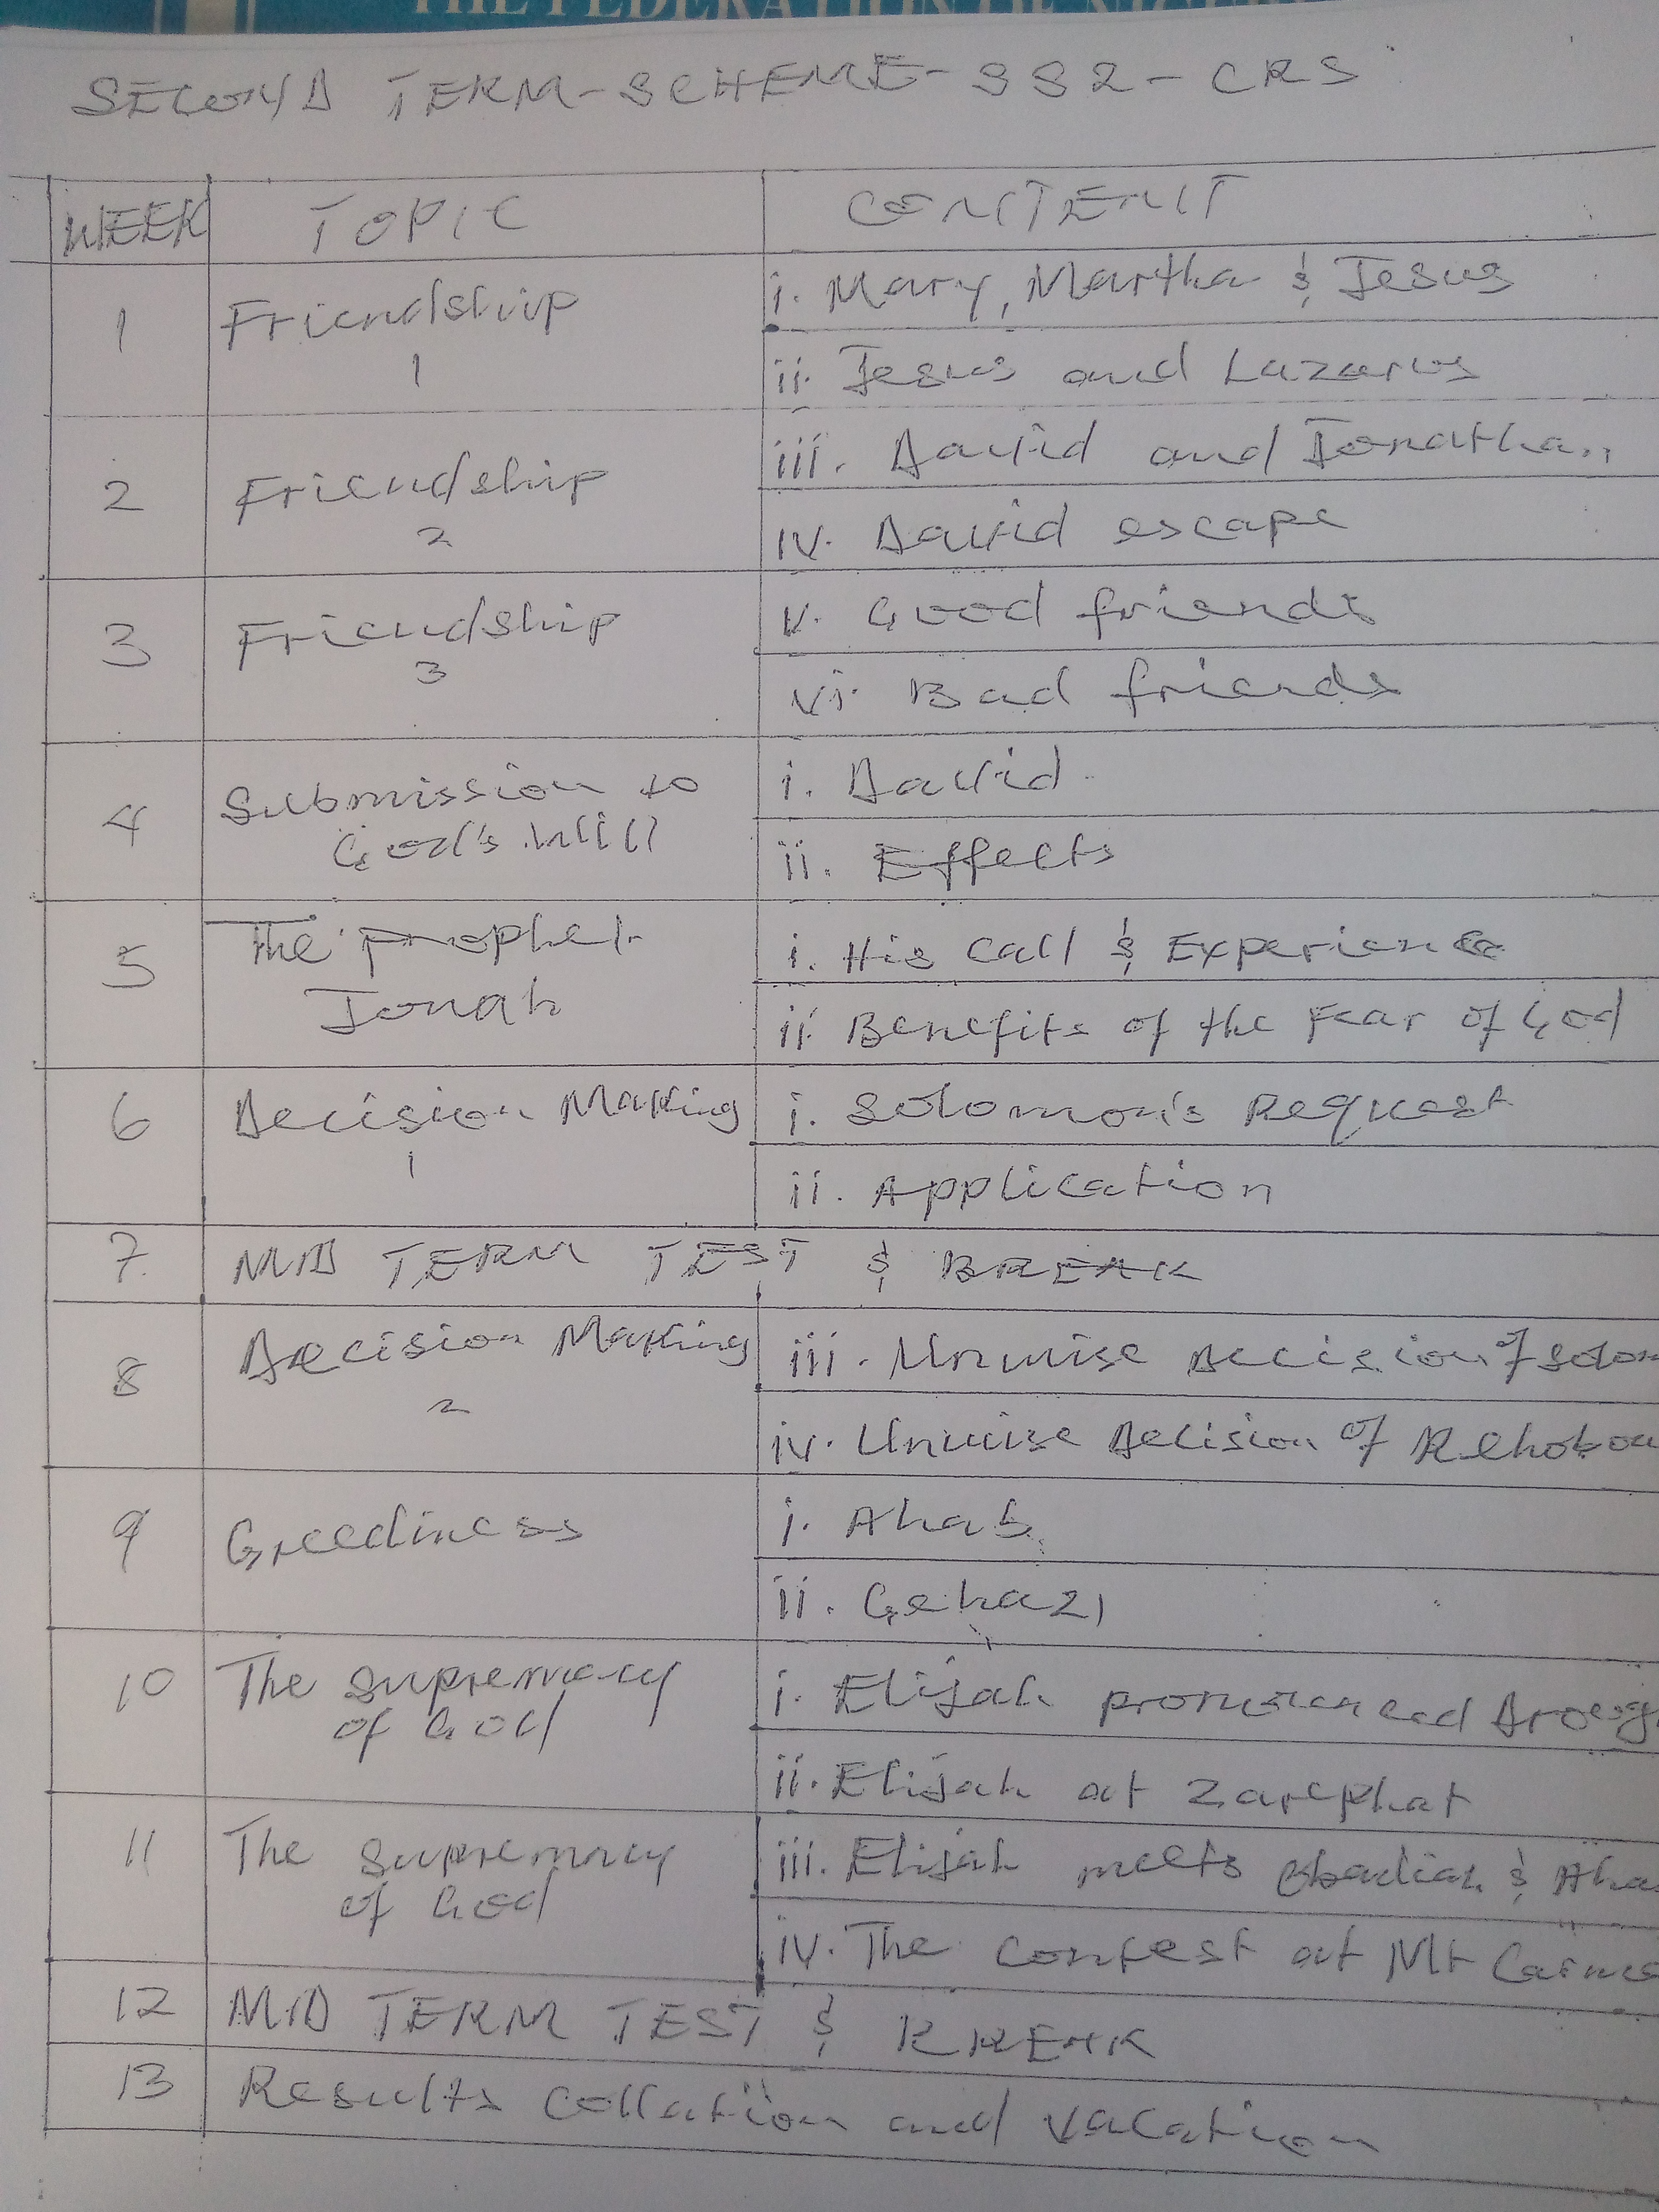 THE FEDERATION OF
SECOND TERM-SCHEME-SS2-CRS
WEEK TOPIC CONTENT
1 Friendship 1
i. Mary, Martha & Jesus
ii. Jesus and Lazarus
2 Friendship 2
iii. David and Jonathan
iv. David escape
3 Friendship 3
v. Good friends
vi. Bad friends
4 Submission to
God's Will
i. David
ii. Effects
5 The Prophet
Jonah
i. His Call & Experience
ii Benefits of the Fear of God
6 Decision Making
1
i. Solomon's Request
ii. Application
7. MID TERM TEST & BREAK
8 Decision Making
2
iii. Unwise Decision of Solom
iv. Unwise Decision of Rehoboa
9 Greediness
i. Ahab
ii. Gehazi
10 The Supremacy
of God
i. Elijah pronounced
ii. Elijah at Zarephat
11 The Supremacy
of God
iii. Elijah meets Obadiah & Aha
iv. The Contest at Mt Carme
12 MID TERM TEST & BREAK
13 Results Collation and Vacation